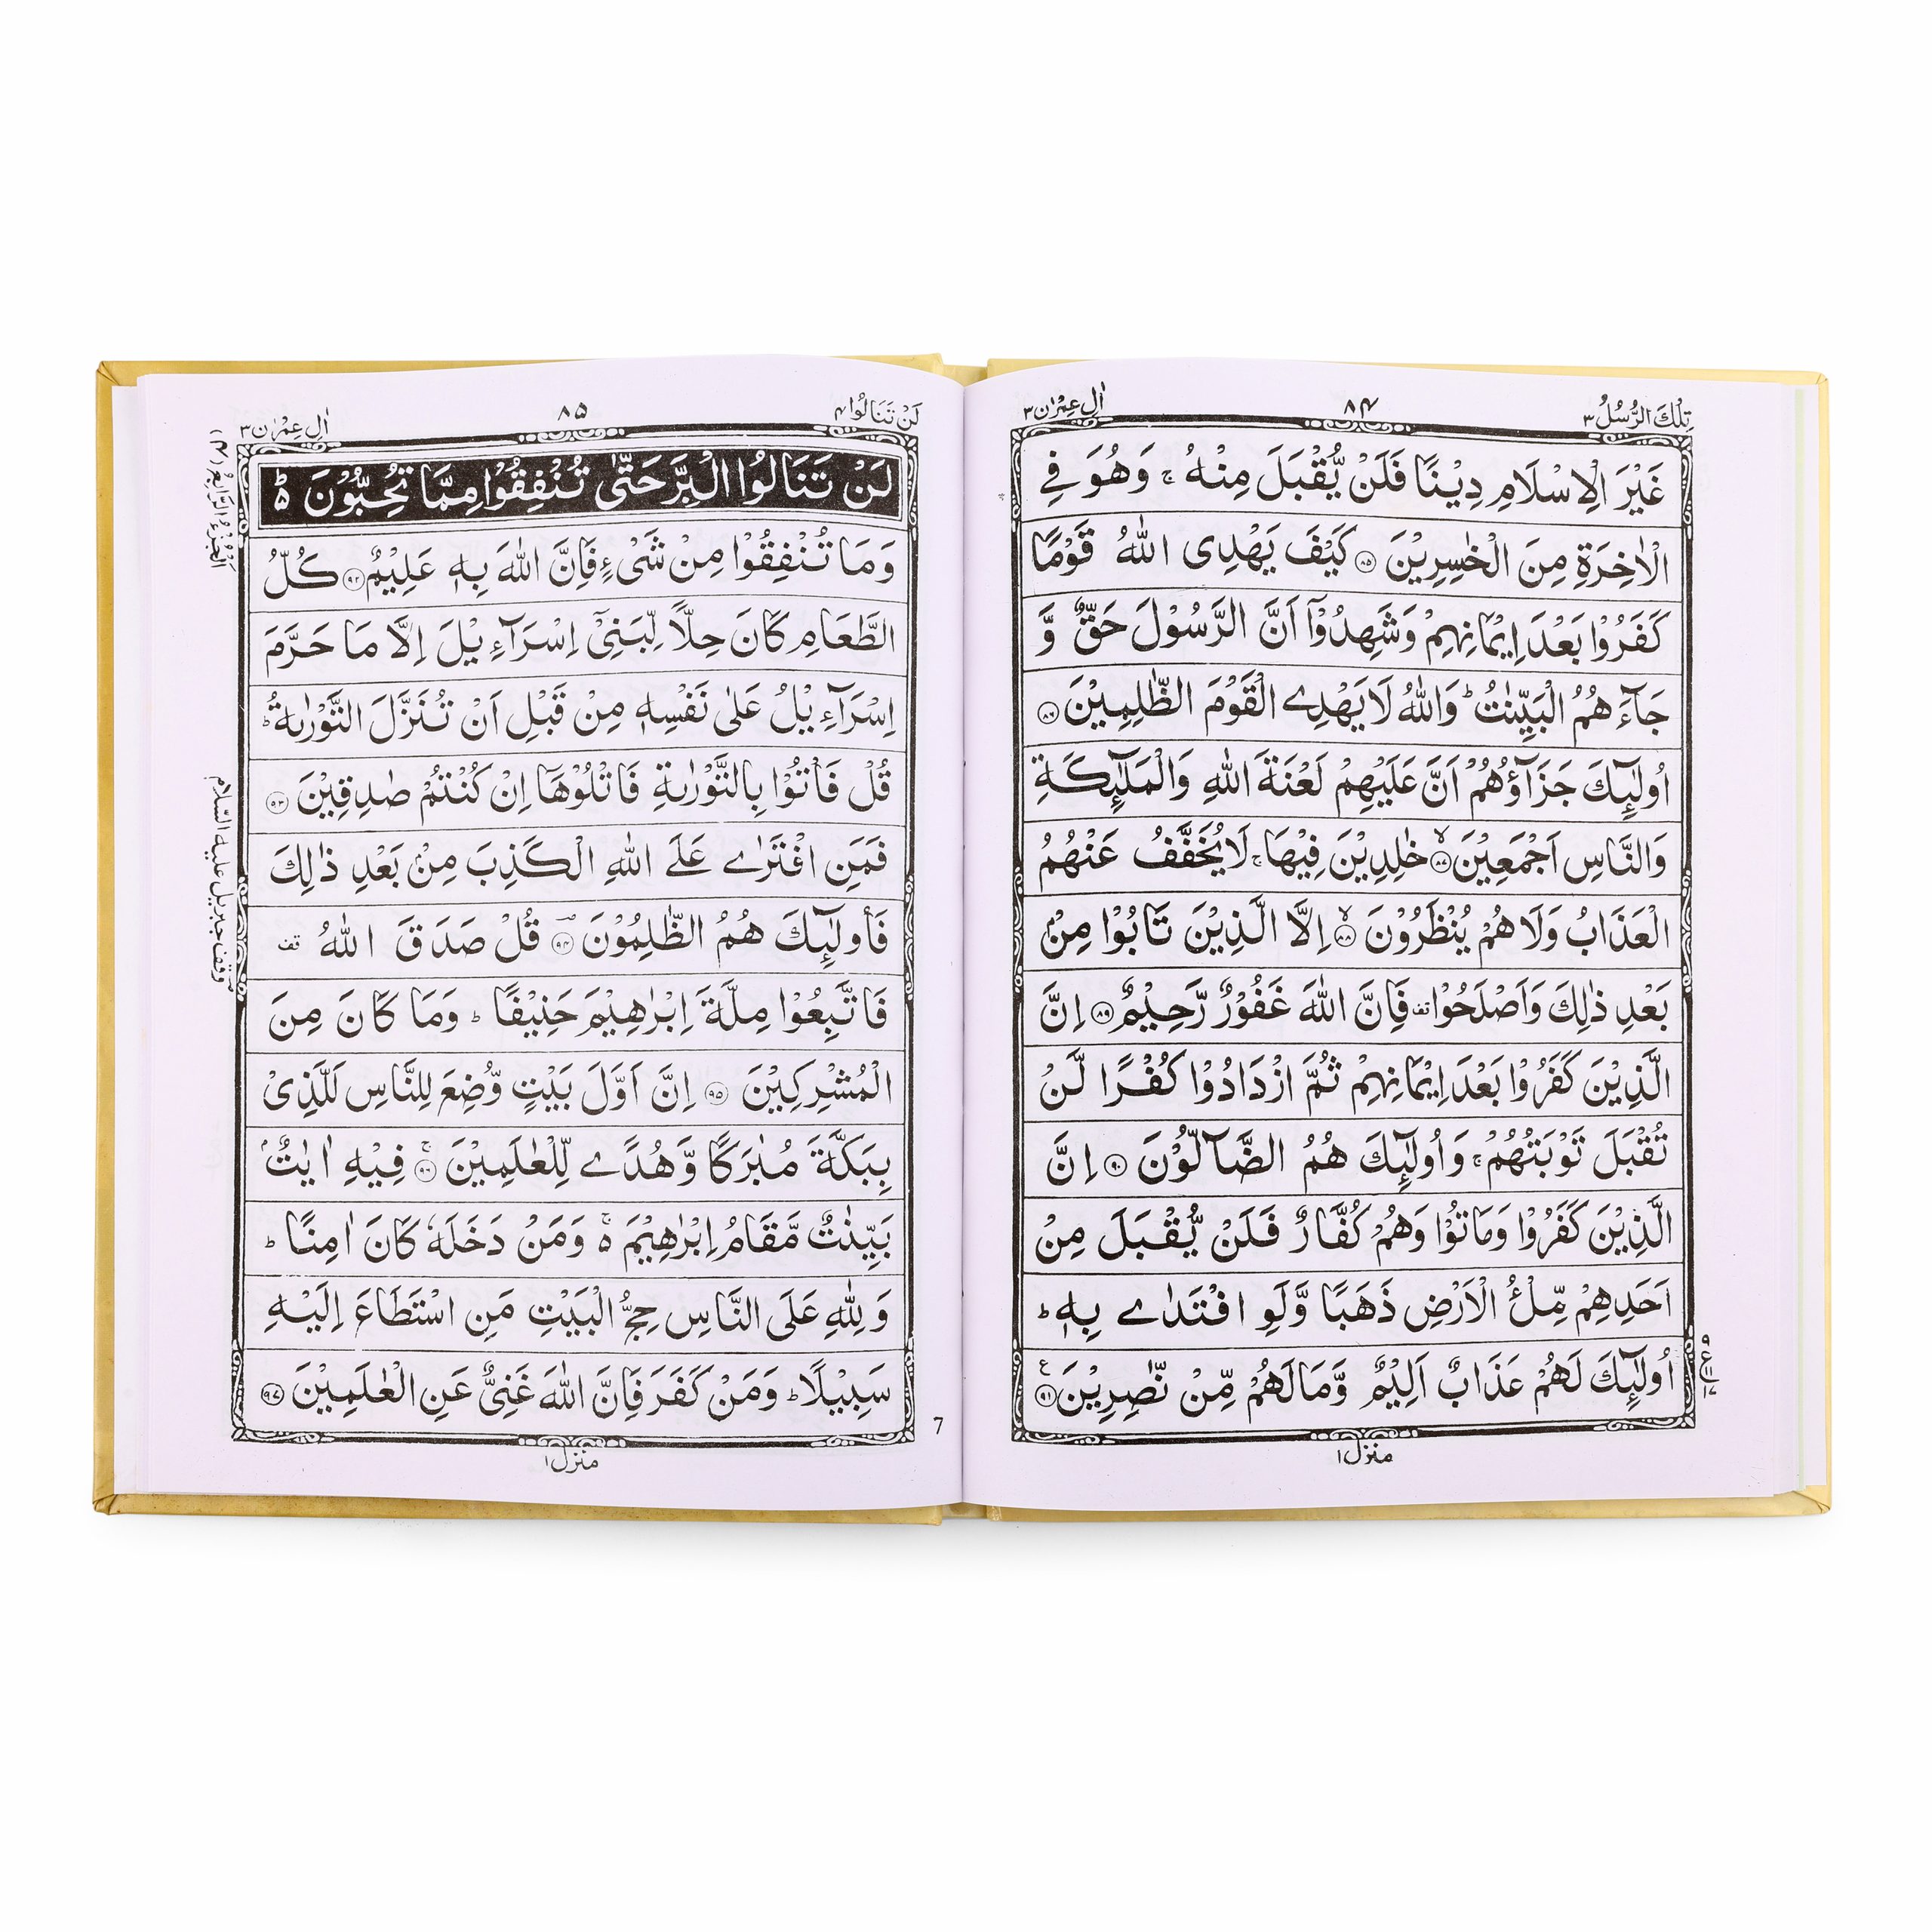 تِلْكَ الرُّسُلُ ٣
٨٤
اٰلِ عِمْرٰن ٣
غَيْرَ الْاِسْلَامِ دِيْنًا فَلَنْ يُّقْبَلَ مِنْهُ ۚ وَهُوَ فِي
الْاٰخِرَةِ مِنَ الْخٰسِرِيْنَ ٨٥ كَيْفَ يَهْدِى اللّٰهُ قَوْمًا
كَفَرُوْا بَعْدَ اِيْمَانِهِمْ وَشَهِدُوْٓا اَنَّ الرَّسُوْلَ حَقٌّ وَّ
جَآءَهُمُ الْبَيِّنٰتُ ؕ وَاللّٰهُ لَا يَهْدِے الْقَوْمَ الظّٰلِمِيْنَ ٨٦
اُولٰٓئِكَ جَزَآؤُهُمْ اَنَّ عَلَيْهِمْ لَعْنَةَ اللّٰهِ وَالْمَلٰٓئِكَةِ
وَالنَّاسِ اَجْمَعِيْنَ ۙ ٨٧ خٰلِدِيْنَ فِيْهَا ۚ لَا يُخَفَّفُ عَنْهُمُ
الْعَذَابُ وَلَا هُمْ يُنْظَرُوْنَ ۙ ٨٨ اِلَّا الَّذِيْنَ تَابُوْا مِنْۢ
بَعْدِ ذٰلِكَ وَاَصْلَحُوْا قف فَاِنَّ اللّٰهَ غَفُوْرٌ رَّحِيْمٌ ٨٩ اِنَّ
الَّذِيْنَ كَفَرُوْا بَعْدَ اِيْمَانِهِمْ ثُمَّ ازْدَادُوْا كُفْرًا لَّنْ
تُقْبَلَ تَوْبَتُهُمْ ۚ وَاُولٰٓئِكَ هُمُ الضَّآلُّوْنَ ٩٠ اِنَّ
الَّذِيْنَ كَفَرُوْا وَمَاتُوْا وَهُمْ كُفَّارٌ فَلَنْ يُّقْبَلَ مِنْ
اَحَدِهِمْ مِّلْءُ الْاَرْضِ ذَهَبًا وَّلَوِ افْتَدٰے بِهٖ ؕ
اُولٰٓئِكَ لَهُمْ عَذَابٌ اَلِيْمٌ وَّمَا لَهُمْ مِّنْ نّٰصِرِيْنَ ٩١ ع
منزل ١
لَنْ تَنَالُوا ٤
٨٥
اٰلِ عِمْرٰن ٣
لَنْ تَنَالُوا الْبِرَّ حَتّٰى تُنْفِقُوْا مِمَّا تُحِبُّوْنَ ؕ
وَمَا تُنْفِقُوْا مِنْ شَىْءٍ فَاِنَّ اللّٰهَ بِهٖ عَلِيْمٌ ٩٢ كُلُّ
الطَّعَامِ كَانَ حِلًّا لِّبَنِىْٓ اِسْرَآءِيْلَ اِلَّا مَا حَرَّمَ
اِسْرَآءِيْلُ عَلٰى نَفْسِهٖ مِنْ قَبْلِ اَنْ تُنَزَّلَ التَّوْرٰىةُ ؕ
قُلْ فَاْتُوْا بِالتَّوْرٰىةِ فَاتْلُوْهَآ اِنْ كُنْتُمْ صٰدِقِيْنَ ٩٣
فَمَنِ افْتَرٰے عَلَے اللّٰهِ الْكَذِبَ مِنْۢ بَعْدِ ذٰلِكَ
فَاُولٰٓئِكَ هُمُ الظّٰلِمُوْنَ ٩٤ قُلْ صَدَقَ اللّٰهُ قف
فَاتَّبِعُوْا مِلَّةَ اِبْرٰهِيْمَ حَنِيْفًا ؕ وَمَا كَانَ مِنَ
الْمُشْرِكِيْنَ ٩٥ اِنَّ اَوَّلَ بَيْتٍ وُّضِعَ لِلنَّاسِ لَلَّذِىْ
بِبَكَّةَ مُبٰرَكًا وَّهُدًے لِّلْعٰلَمِيْنَ ۚ ٩٦ فِيْهِ اٰيٰتٌۢ
بَيِّنٰتٌ مَّقَامُ اِبْرٰهِيْمَ ۚ٥ وَمَنْ دَخَلَهٗ كَانَ اٰمِنًا ؕ
وَلِلّٰهِ عَلَى النَّاسِ حِجُّ الْبَيْتِ مَنِ اسْتَطَاعَ اِلَيْهِ
سَبِيْلًا ؕ وَمَنْ كَفَرَ فَاِنَّ اللّٰهَ غَنِىٌّ عَنِ الْعٰلَمِيْنَ ٩٧
اَلْجُزْءُ الرَّابِعُ (٤)
وقف جبريل عليه السّلام
7
منزل ١